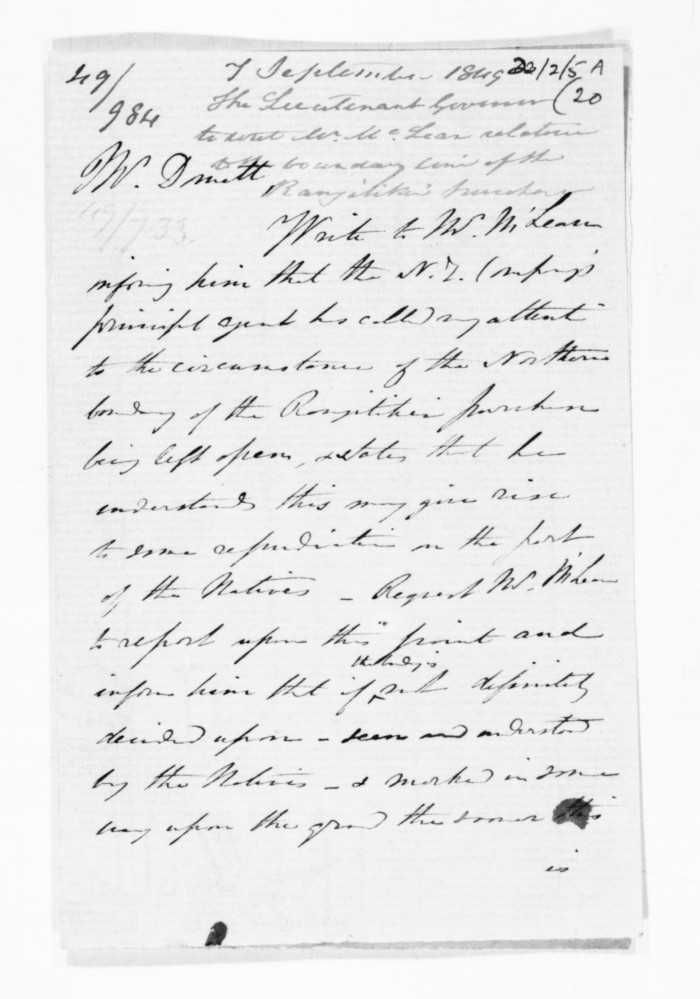 49/
984
7 September 1849
D2/2/5 A
(20
The Lieutenant Governor
to Mr. McLean relative
to the boundary line of the
Rangitikei purchase
Mr. Domett
49/733.
Write to Mr. McLean
inforing him that the N.Z. Company's
principl agent has called my attenti
to the circumstance of the Northern
boundary of the Rangitikei purchase
being left open, & states that he
understands this may give rise
to some repudiation on the part
of the Natives – Request Mr. McLean
to report upon this point and
inform him that if not definitely
decided upon – seen and understood
by the Natives – & marked in some
way upon the ground the sooner this
is